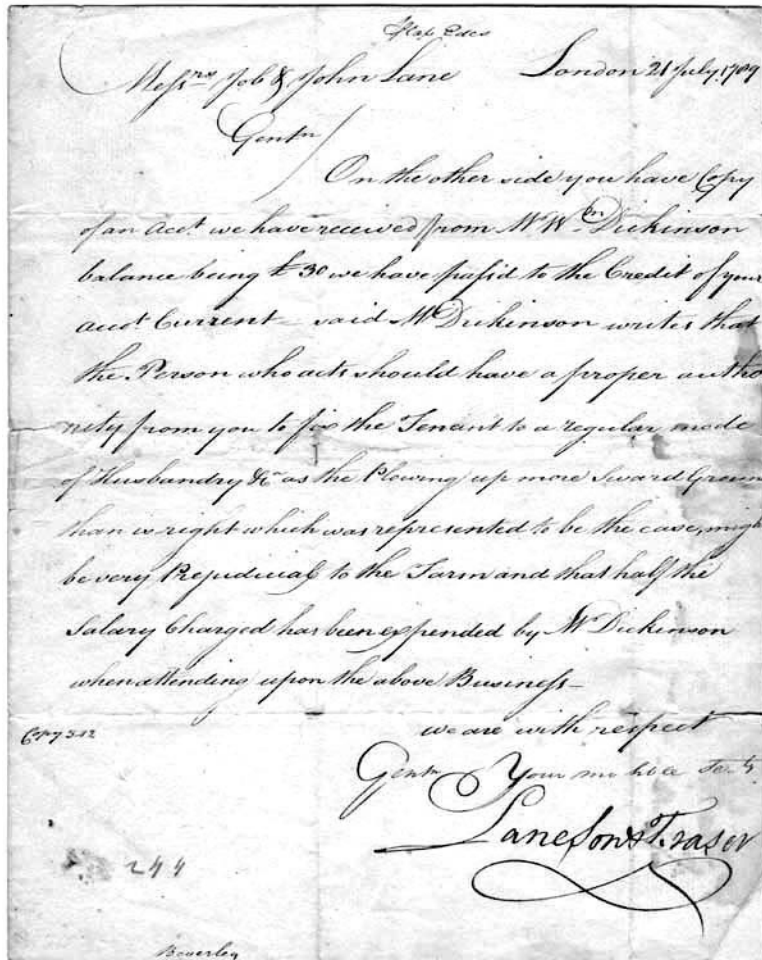 Messrs Job & John Lane London 21 July 1789
Gentn
On the other side you have Copy
of an Acct we have received from Mr Wm Dickinson
balance being £ 30 we have passd to the Credit of your
Acct Current - said Mr Dickinson writes that
the Person who acts should have a proper autho
rity from you to fix the Tenant to a regular mode
of Husbandry &c as the Plowing up more Sward Groun
than is right which was represented to be the case, migh
be very Prejudicial to the Farm and that half the
Salary Charged has been expended by Mr Dickinson
when attending upon the above Business -
we are with respect
Copy 312
Gentn Your mo hble Servts
Lane Son & Fraser
244
Beverley